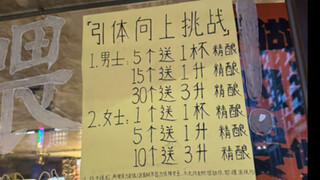 「引体向上挑战」
1.男士:5个送1杯 精酿
15个送1升 精酿
30个送3升 精酿
2.女士:1个送1杯 精酿
5个送1升 精酿
10个送3升 精酿
喂